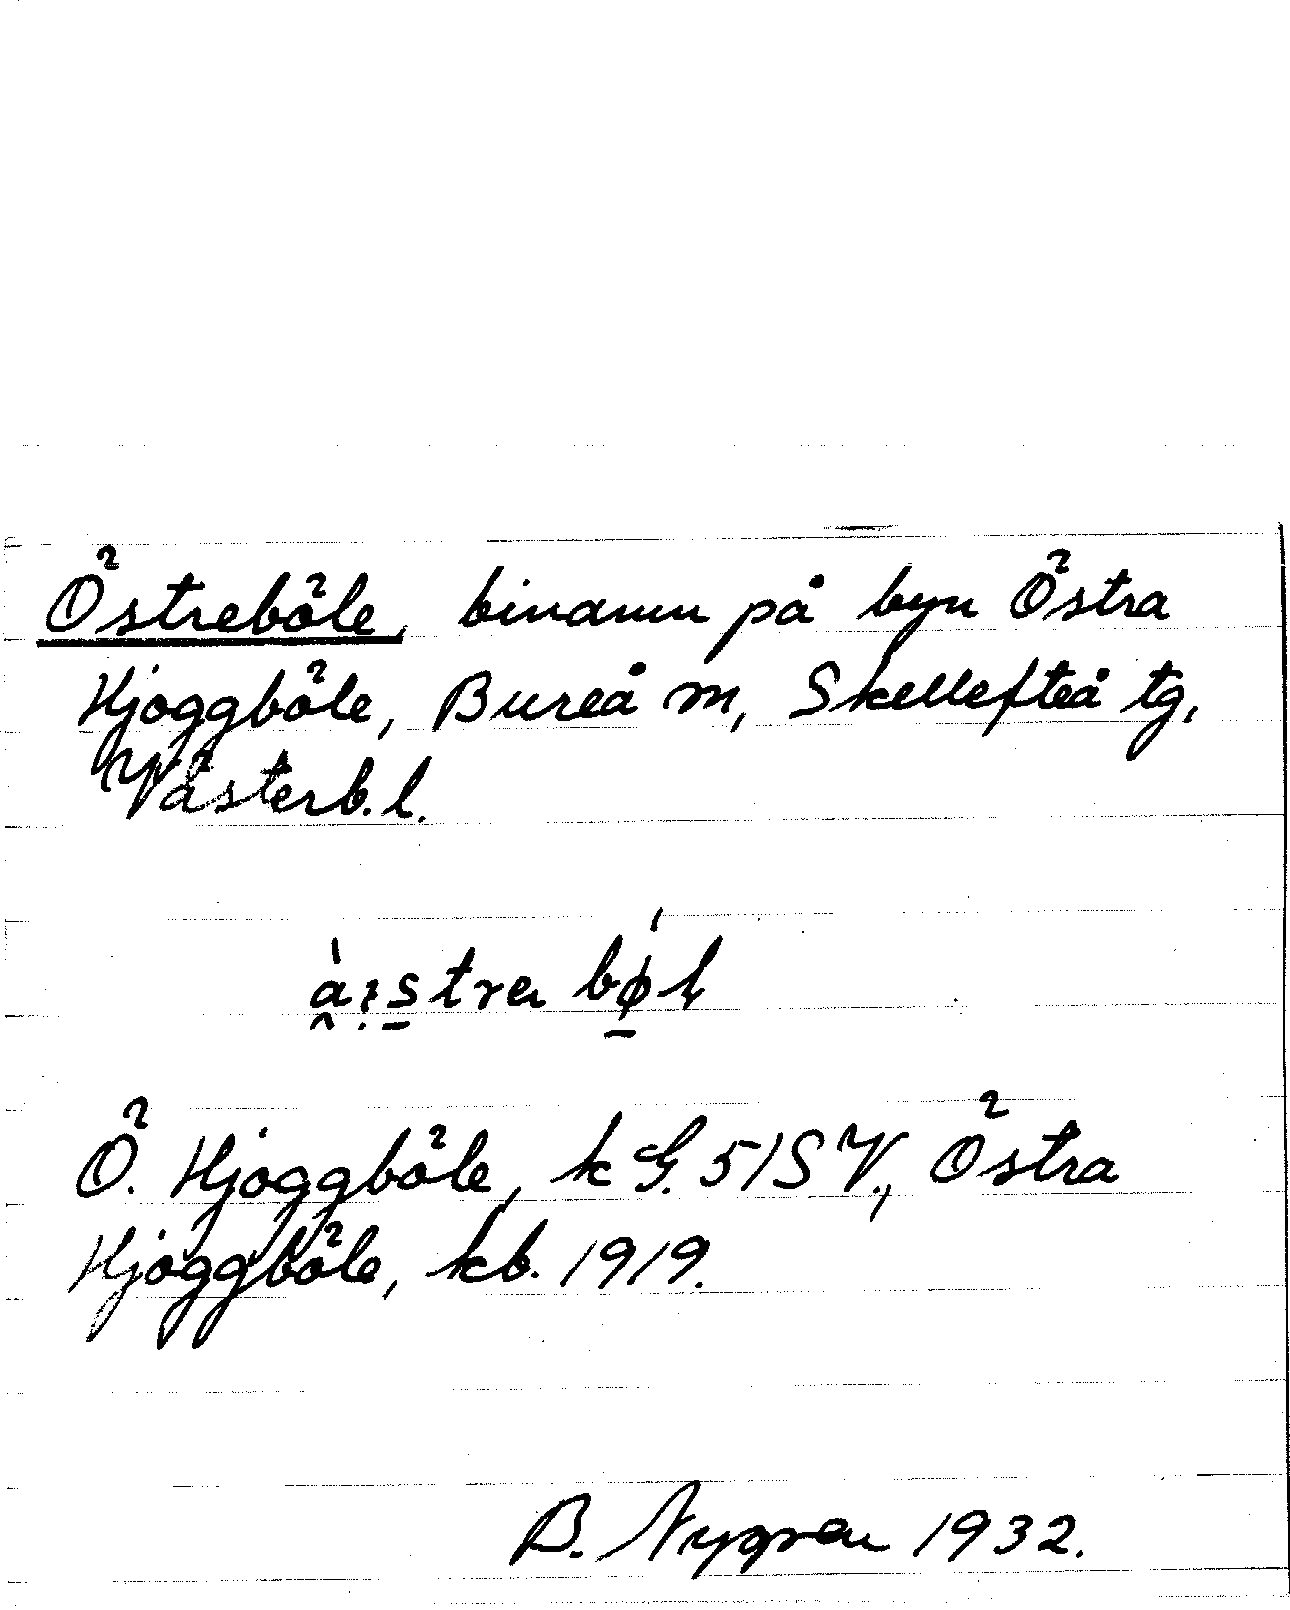 Östreböle, binamn på byn Östra
Hjoggböle, Bureå m, Skellefteå tg,
Västerb. l.
Ö. Hjoggböle, k G. 51 S V., Östra
Hjoggböle, kb. 1919.
B. Nygren 1932.